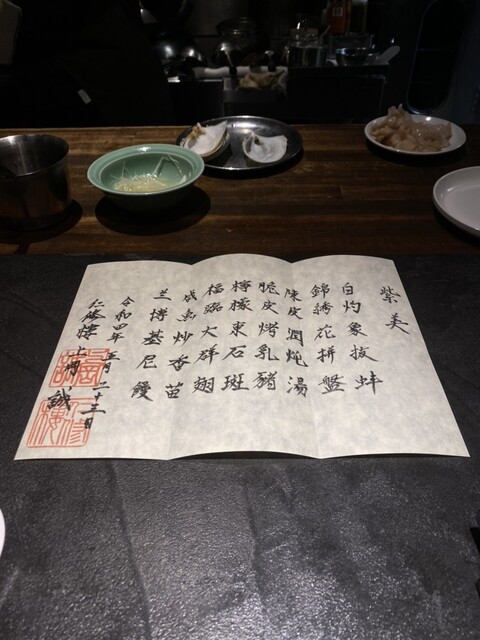 紫美
白灼象拔蚌
錦綉花拼盤
陳皮潤燉湯
脆皮烤乳豬
檸檬東石斑
福臨大群翅
成魚炒香苗
兰博基尼饅
令和四年五月二十三日
仁修樓 上岡誠